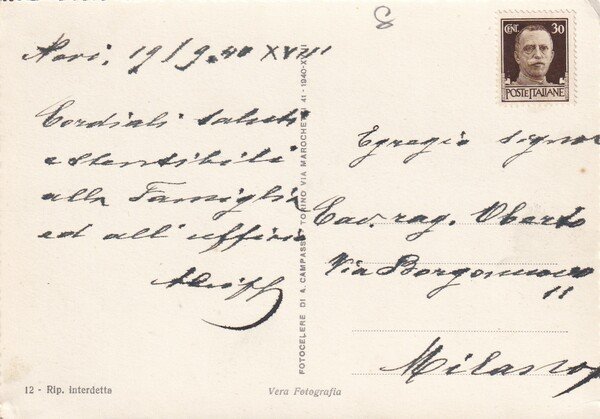 8
CENT. 30
POSTE ITALIANE
Novi, 19/9.40 XVIII
Cordiali saluti
estensibili
alla Famiglia
ed all'ufficio
Egregio signor
Cav. rag. Oberto
Via Borgonuovo
11
Milano
FOTOCELERE DI A. CAMPASSI TORINO VIA MAROCHETTI 41 - 1940-XVIII
12 - Rip. Interdetta
Vera Fotografia